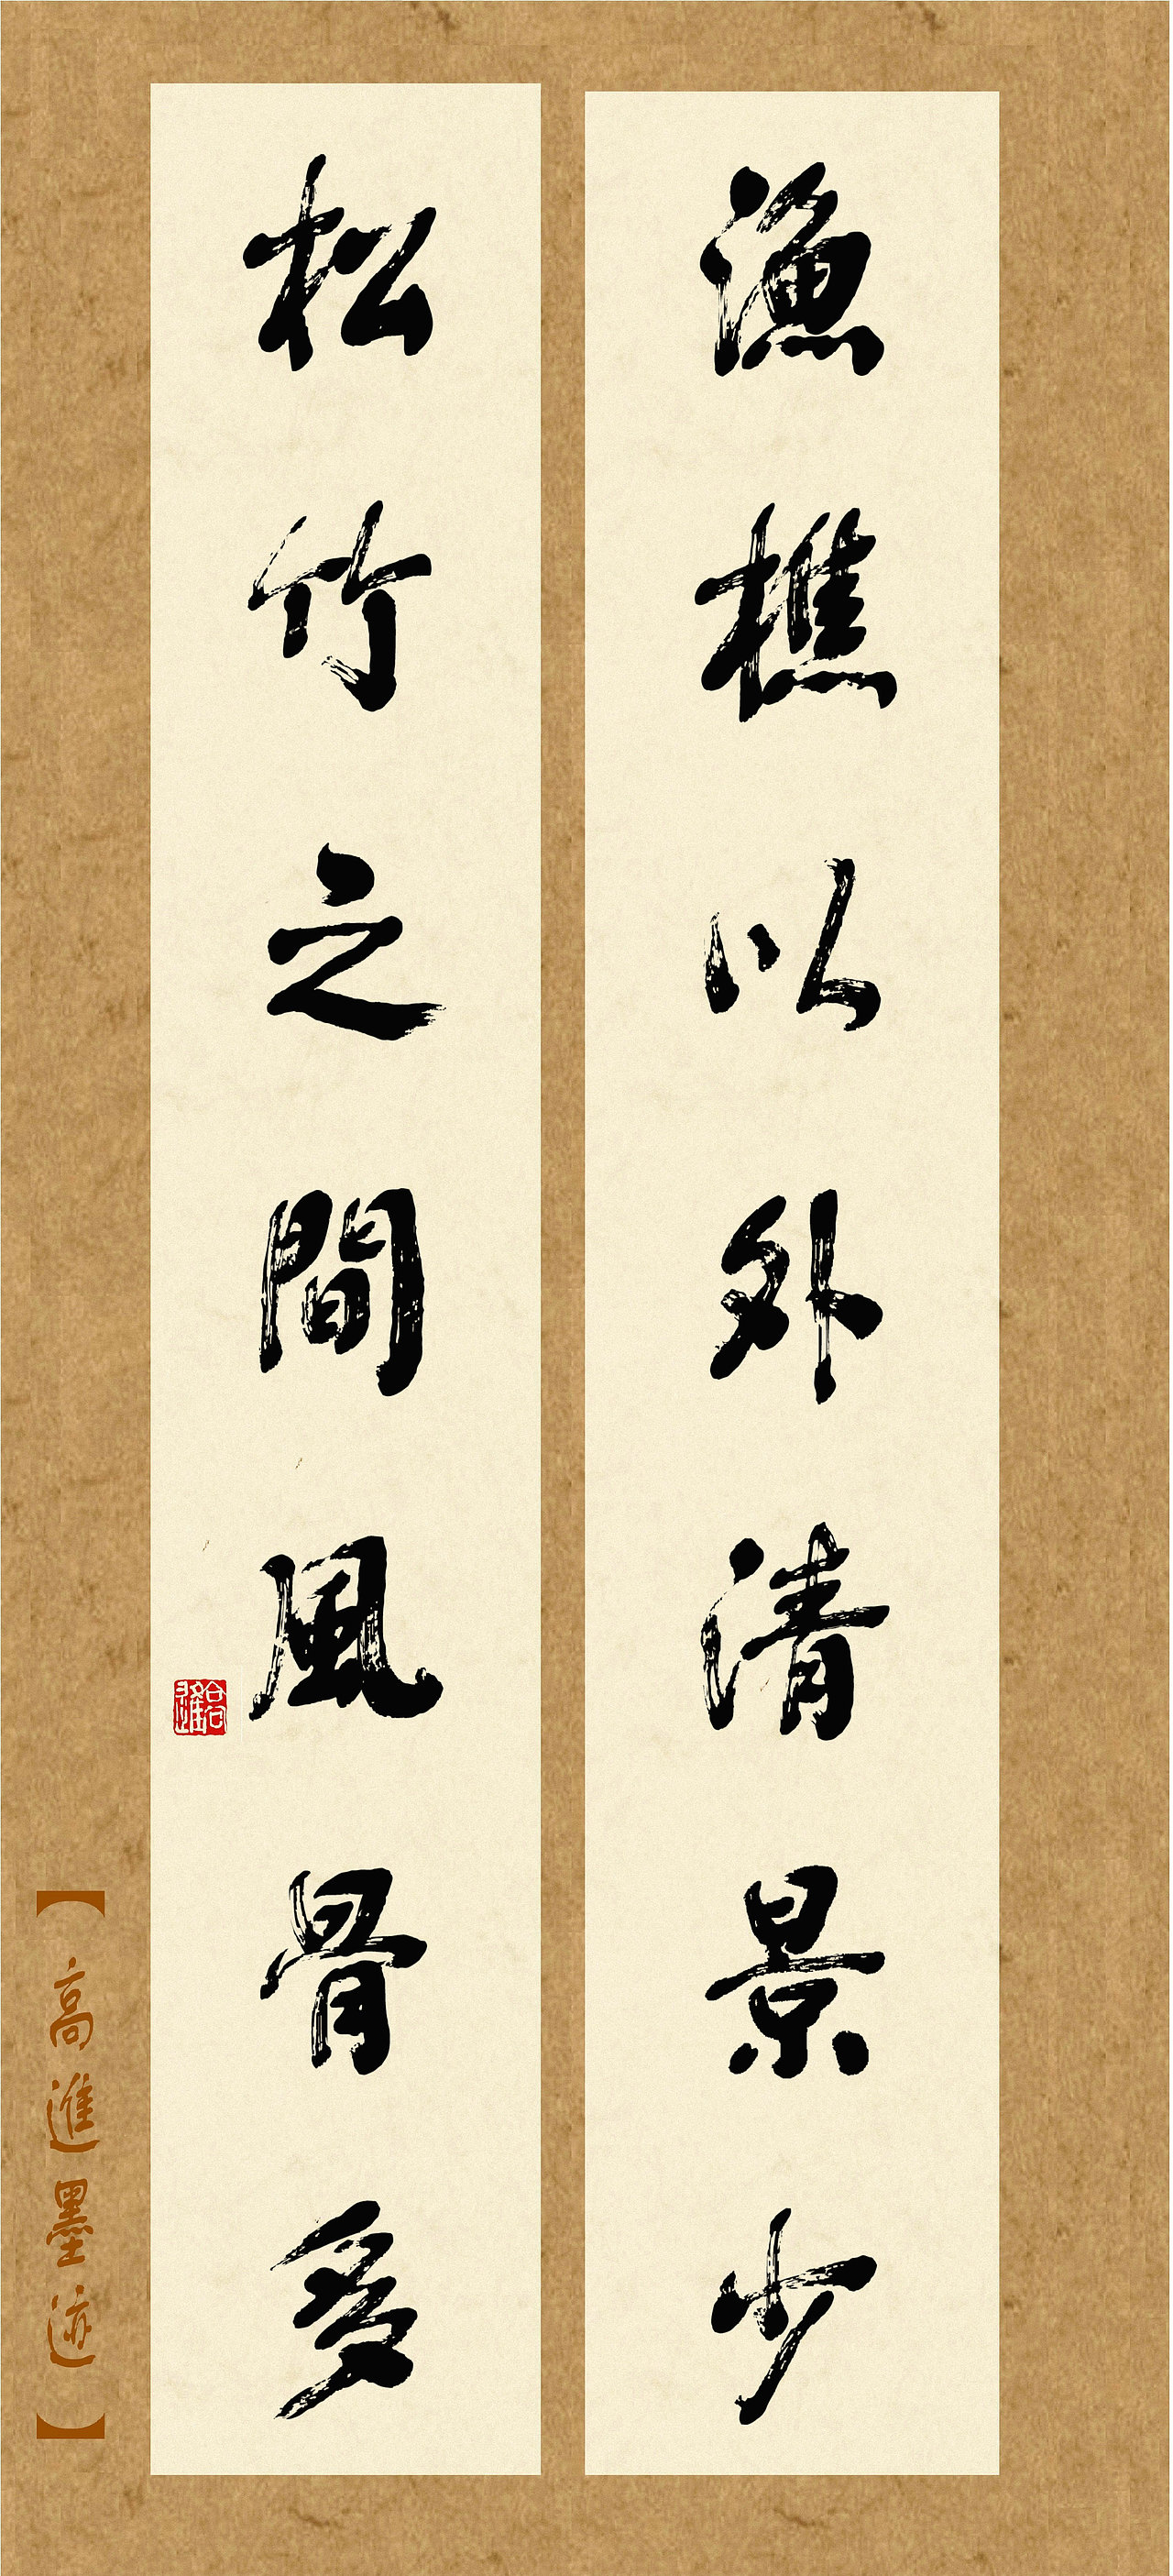 漁樵以外清景少
松竹之間風骨多
【高進墨迹】